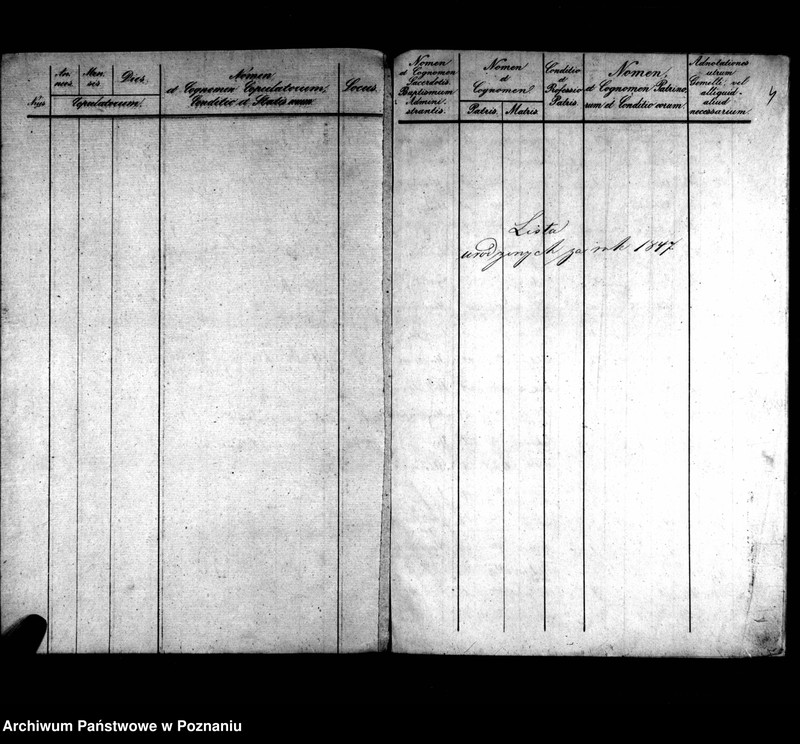 An-
nus.
Men-
sis
Dies.
Copulatorum.
Nrus
Nomen
et Cognomen Copulatorum,
Conditio et Status eorum
Locus.
Nomen
et Cognomen
Sacerdotis
Baptismum
Admini-
strantis.
Nomen
et
Cognomen
Patris.
Matris.
Conditio
et
Professio
Patris.
Nomen,
et Cognomen Patrino-
rum et Conditio eorum.
Adnotationes
utrum
Gemelli, vel
alliquid-
aliud
necessarium.
Lista
urodzonych za rok 1847.
Archiwum Państwowe w Poznaniu